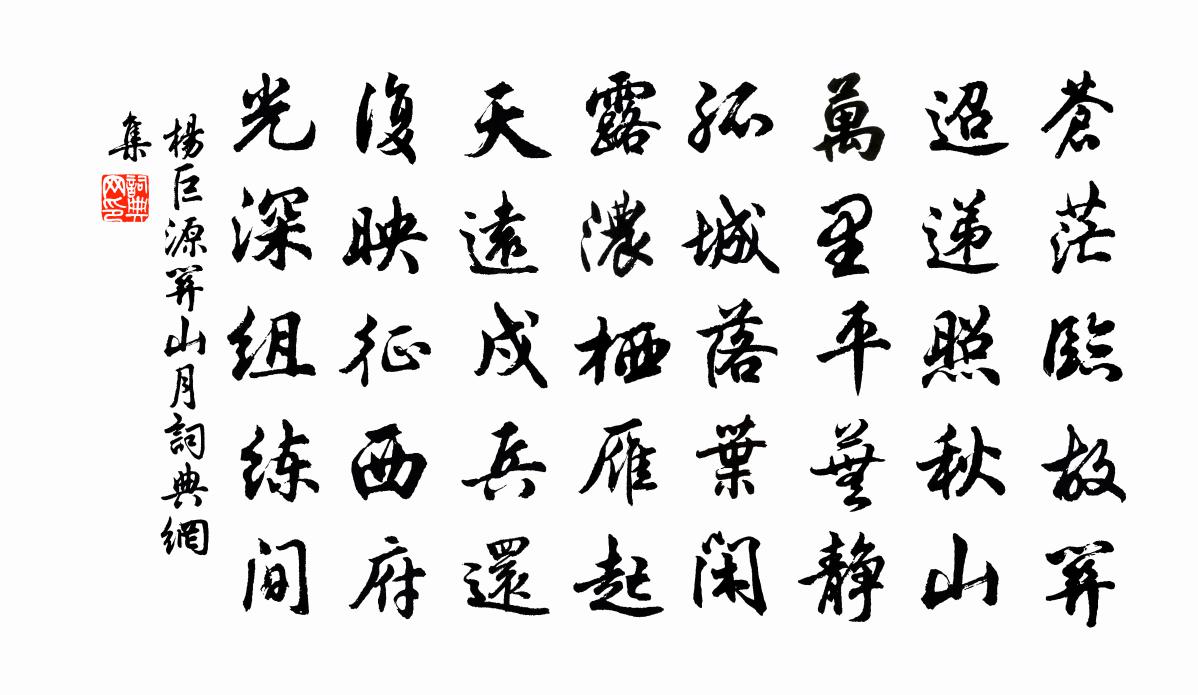 蒼茫臨故關
迢递照秋山
萬里平蕪静
孤城落葉閑
露濃栖雁起
天遠戍兵還
復映征西府
光深组练間
楊巨源關山月詞典網
集
詞典網印